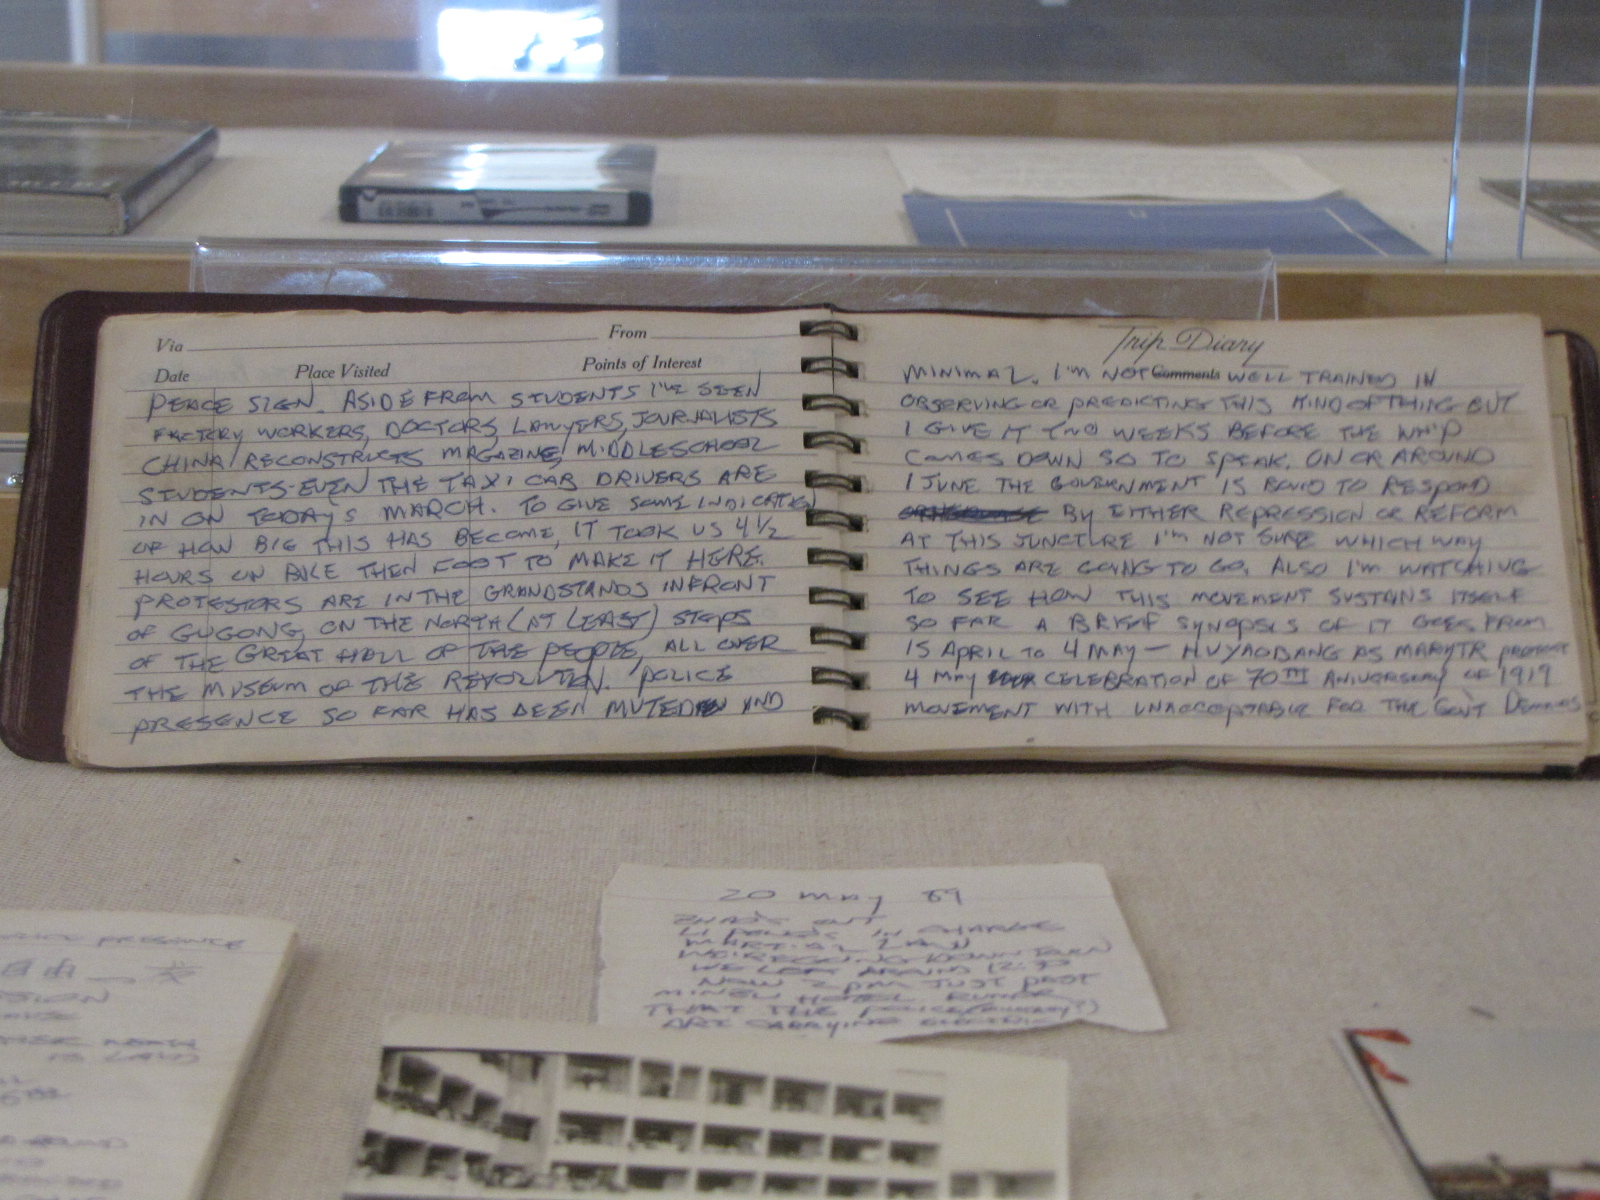 Via From
Date Place Visited Points of Interest
PEACE SIGN. ASIDE FROM STUDENTS I'VE SEEN
FACTORY WORKERS, DOCTORS, LAWYERS, JOURNALISTS
CHINA RECONSTRUCTS MAGAZINE, MIDDLESCHOOL
STUDENTS-EVEN THE TAXI CAR DRIVERS ARE
IN ON TODAY'S MARCH. TO GIVE SOME INDICATION
OF HOW BIG THIS HAS BECOME, IT TOOK US 4 1/2
HOURS ON BIKE THEN FOOT TO MAKE IT HERE.
PROTESTORS ARE IN THE GRANDSTANDS INFRONT
OF GUGONG, ON THE NORTH (AT LEAST) STEPS
OF THE GREAT HALL OF THE PEOPLE, ALL OVER
THE MUSEUM OF THE REVOLUTION. POLICE
PRESENCE SO FAR HAS BEEN MUTED AND
Trip Diary
Comments
MINIMAL. I'M NOT WELL TRAINED IN
OBSERVING OR PREDICTING THIS KIND OF THING BUT
I GIVE IT TWO WEEKS BEFORE THE WHIP
COMES DOWN SO TO SPEAK. ON OR AROUND
1 JUNE THE GOVERNMENT IS BOUND TO RESPOND
BY EITHER REPRESSION OR REFORM
AT THIS JUNCTURE I'M NOT SURE WHICH WAY
THINGS ARE GOING TO GO. ALSO I'M WATCHING
TO SEE HOW THIS MOVEMENT SUSTAINS ITSELF
SO FAR A BRIEF SYNOPSIS OF IT GOES FROM
15 APRIL TO 4 MAY — HUYAOBANG AS MARYTR PROTEST
4 MAY CELEBRATION OF 70TH ANIVERSARY OF 1919
MOVEMENT WITH UNACCEPTABLE FOR THE GOV'T DEMANDS
20 MAY 89
ZHAO'S OUT
LI PENG'S IN CHARGE
MARTIAL LAW
WE'RE GOING DOWNTOWN
WE LEFT AROUND 12:30
NOW 2PM JUST PAST
MINZU HOTEL RUMOR
THAT THE POLICE
ARE CARRYING ELECTRIC
PRESENCE
自由